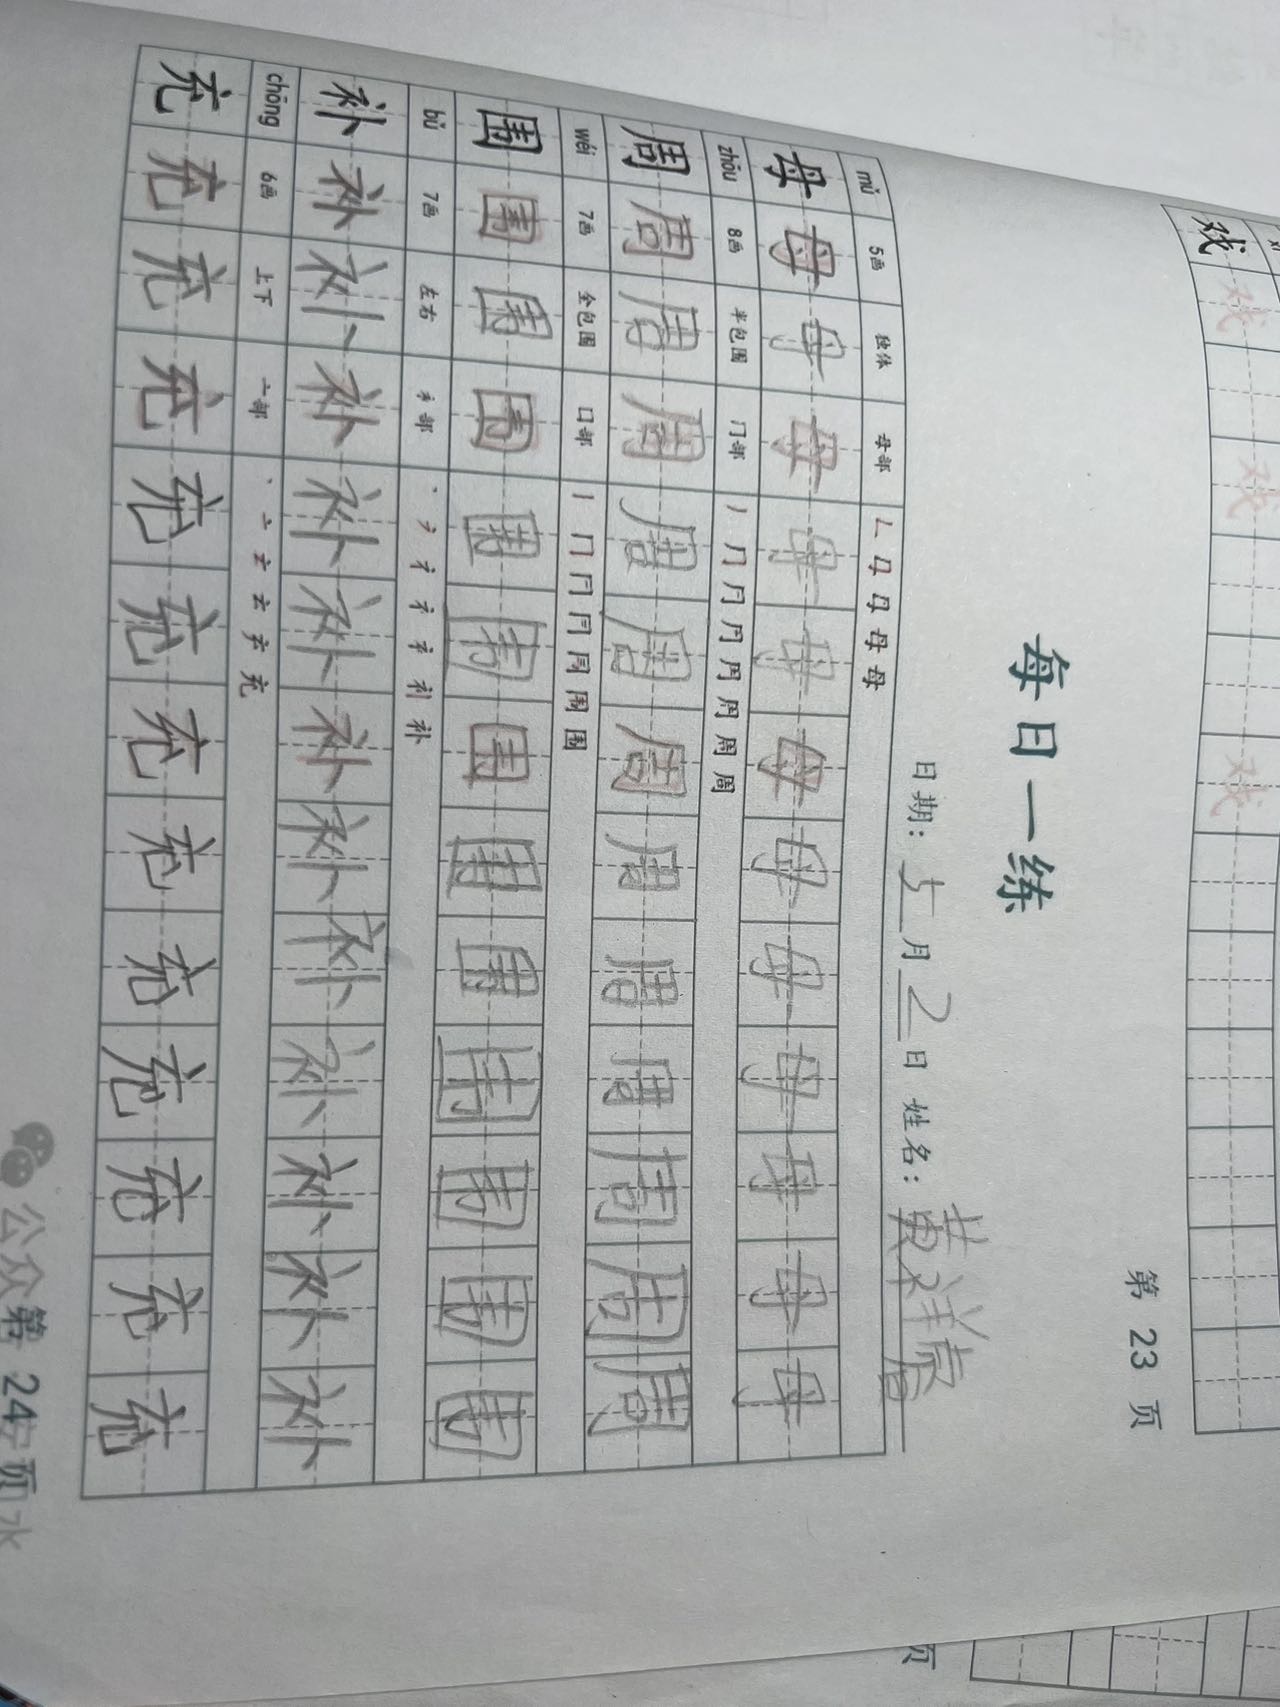 戏 戏 戏 戏
第 23 页
每日一练
日期：5月2日 姓名：黄祥
mǔ 5画 独体 母部 ㄴ 母 母 母 母
母 母 母 母 母 母 母 母 母 母 母 母 母
zhōu 8画 半包围 冂部 丿 冂 冂 冃 冃 周 周 周
周 周 周 周 周 周 周 周 周 周 周 周 周
wéi 7画 全包围 口部 丨 冂 冂 冃 同 围 围
围 围 围 围 围 围 围 围 围 围 围 围 围
bǔ 7画 左右 衤部 丶 ㇇ 衤 衤 衤 补 补
补 补 补 补 补 补 补 补 补 补 补 补 补
chōng 6画 上下 亠部 丶 亠 云 云 充 充
充 充 充 充 充 充 充 充 充 充 充 充 充
第 24 页
公众
页